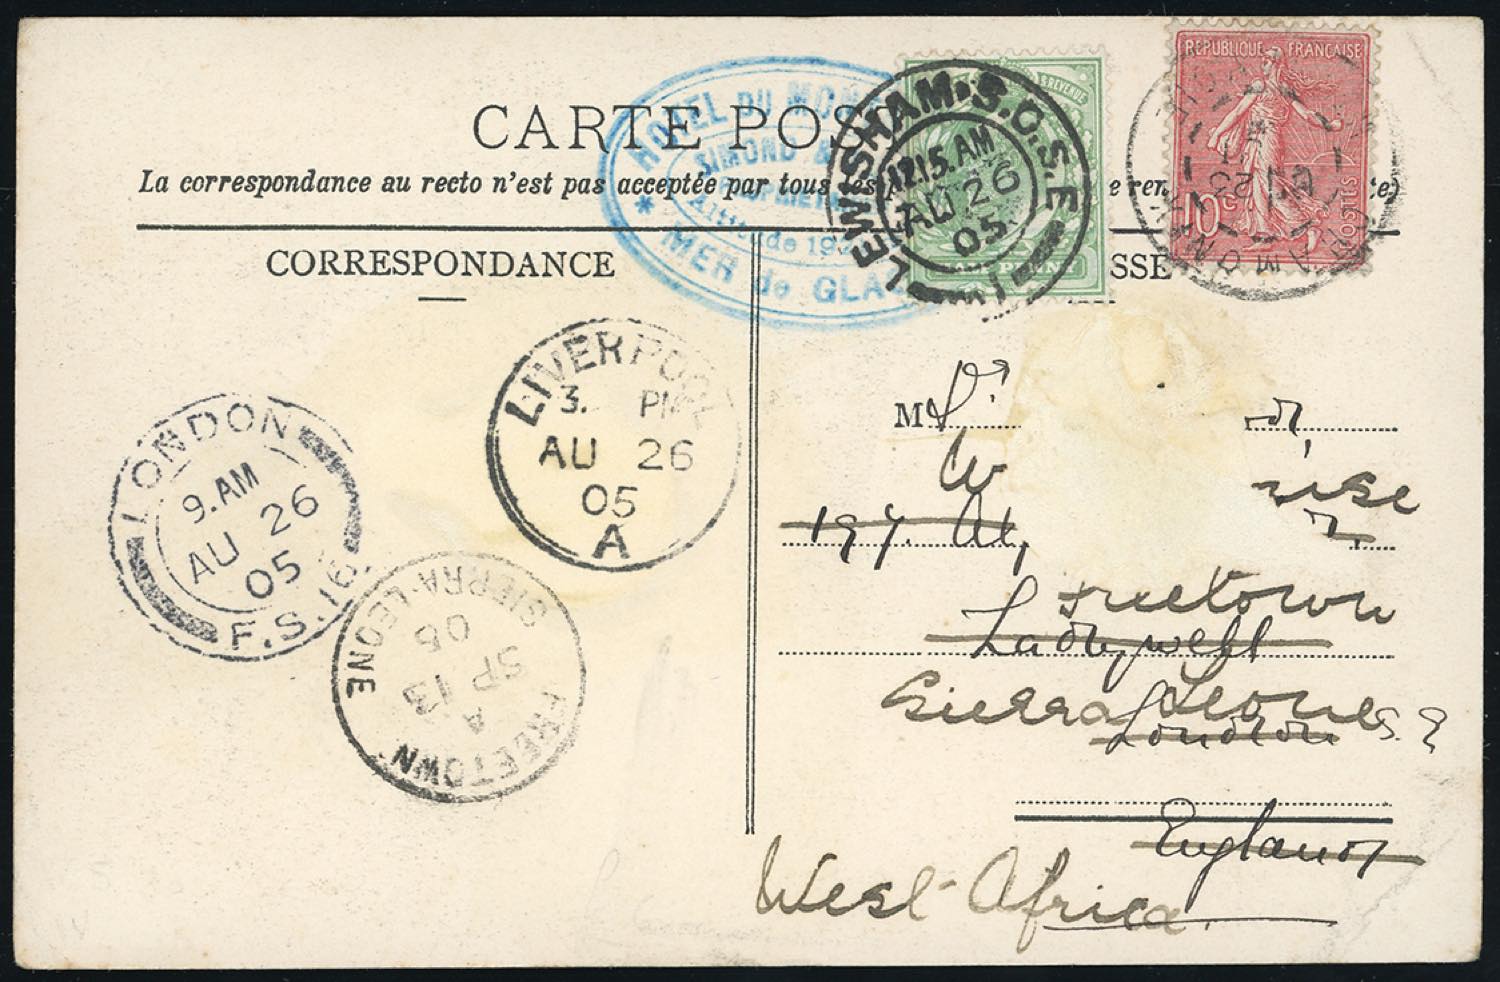 CARTE POS
La correspondance au recto n'est pas acceptée par tous les
e ren
e)
CORRESPONDANCE
SSE
HOTEL DU MON
SIMOND &
PROPRIET
Altitude 19
* MER de GLA
LEWISHAM. S.O. S.E
12.15. AM
AU 26
05
& REVENUE
PENNY
REPUBLIQUE FRANÇAISE
10c
POSTES
LIVERPOOL
3. PM
AU 26
05
A
LONDON
9. AM
AU 26
05
F.S. 16
FREETOWN
A
SP 13
05
SIERRA-LEONE
M
W
197. Al
Freetown
Ladywell
Sierra Leone
London S. E
England
West Africa.